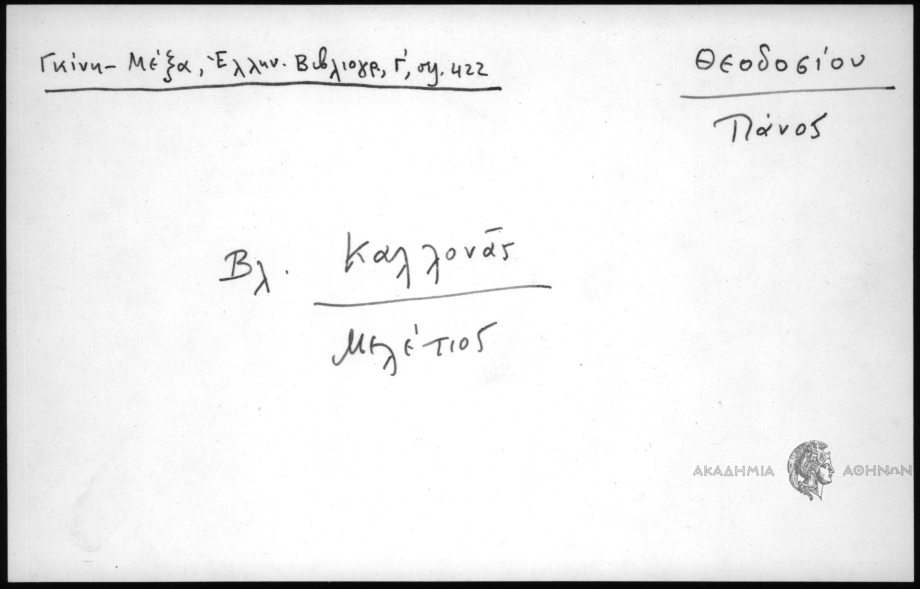 Γκίνη - Μέξα, Ἑλλην. Βιβλιογρ, Γ', σ. 422
Θεοδοσίου
Πάνος
Βλ. Καλλονᾶς
Μελέτιος
ΑΚΑΔΗΜΙΑ ΑΘΗΝΩΝ